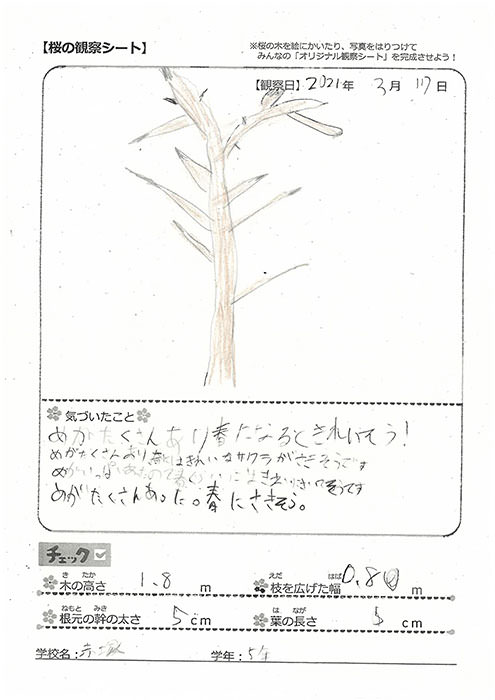 【桜の観察シート】
※桜の木を絵にかいたり、写真をはりつけて
みんなの「オリジナル観察シート」を完成させよう!
【観察日】2021年 3月 17日
気づいたこと
めがたくさんあり春になるときれいそう!
めがたくさんあり春にはきれいなサクラがさきそうです
めがいっぱいある
めがたくさんあった。春にさきそう。
チェック
木の高さ 1.8 m
枝を広げた幅 0.80 m
根元の幹の太さ 5 cm
葉の長さ cm
学校名: 赤塚
学年: 5年